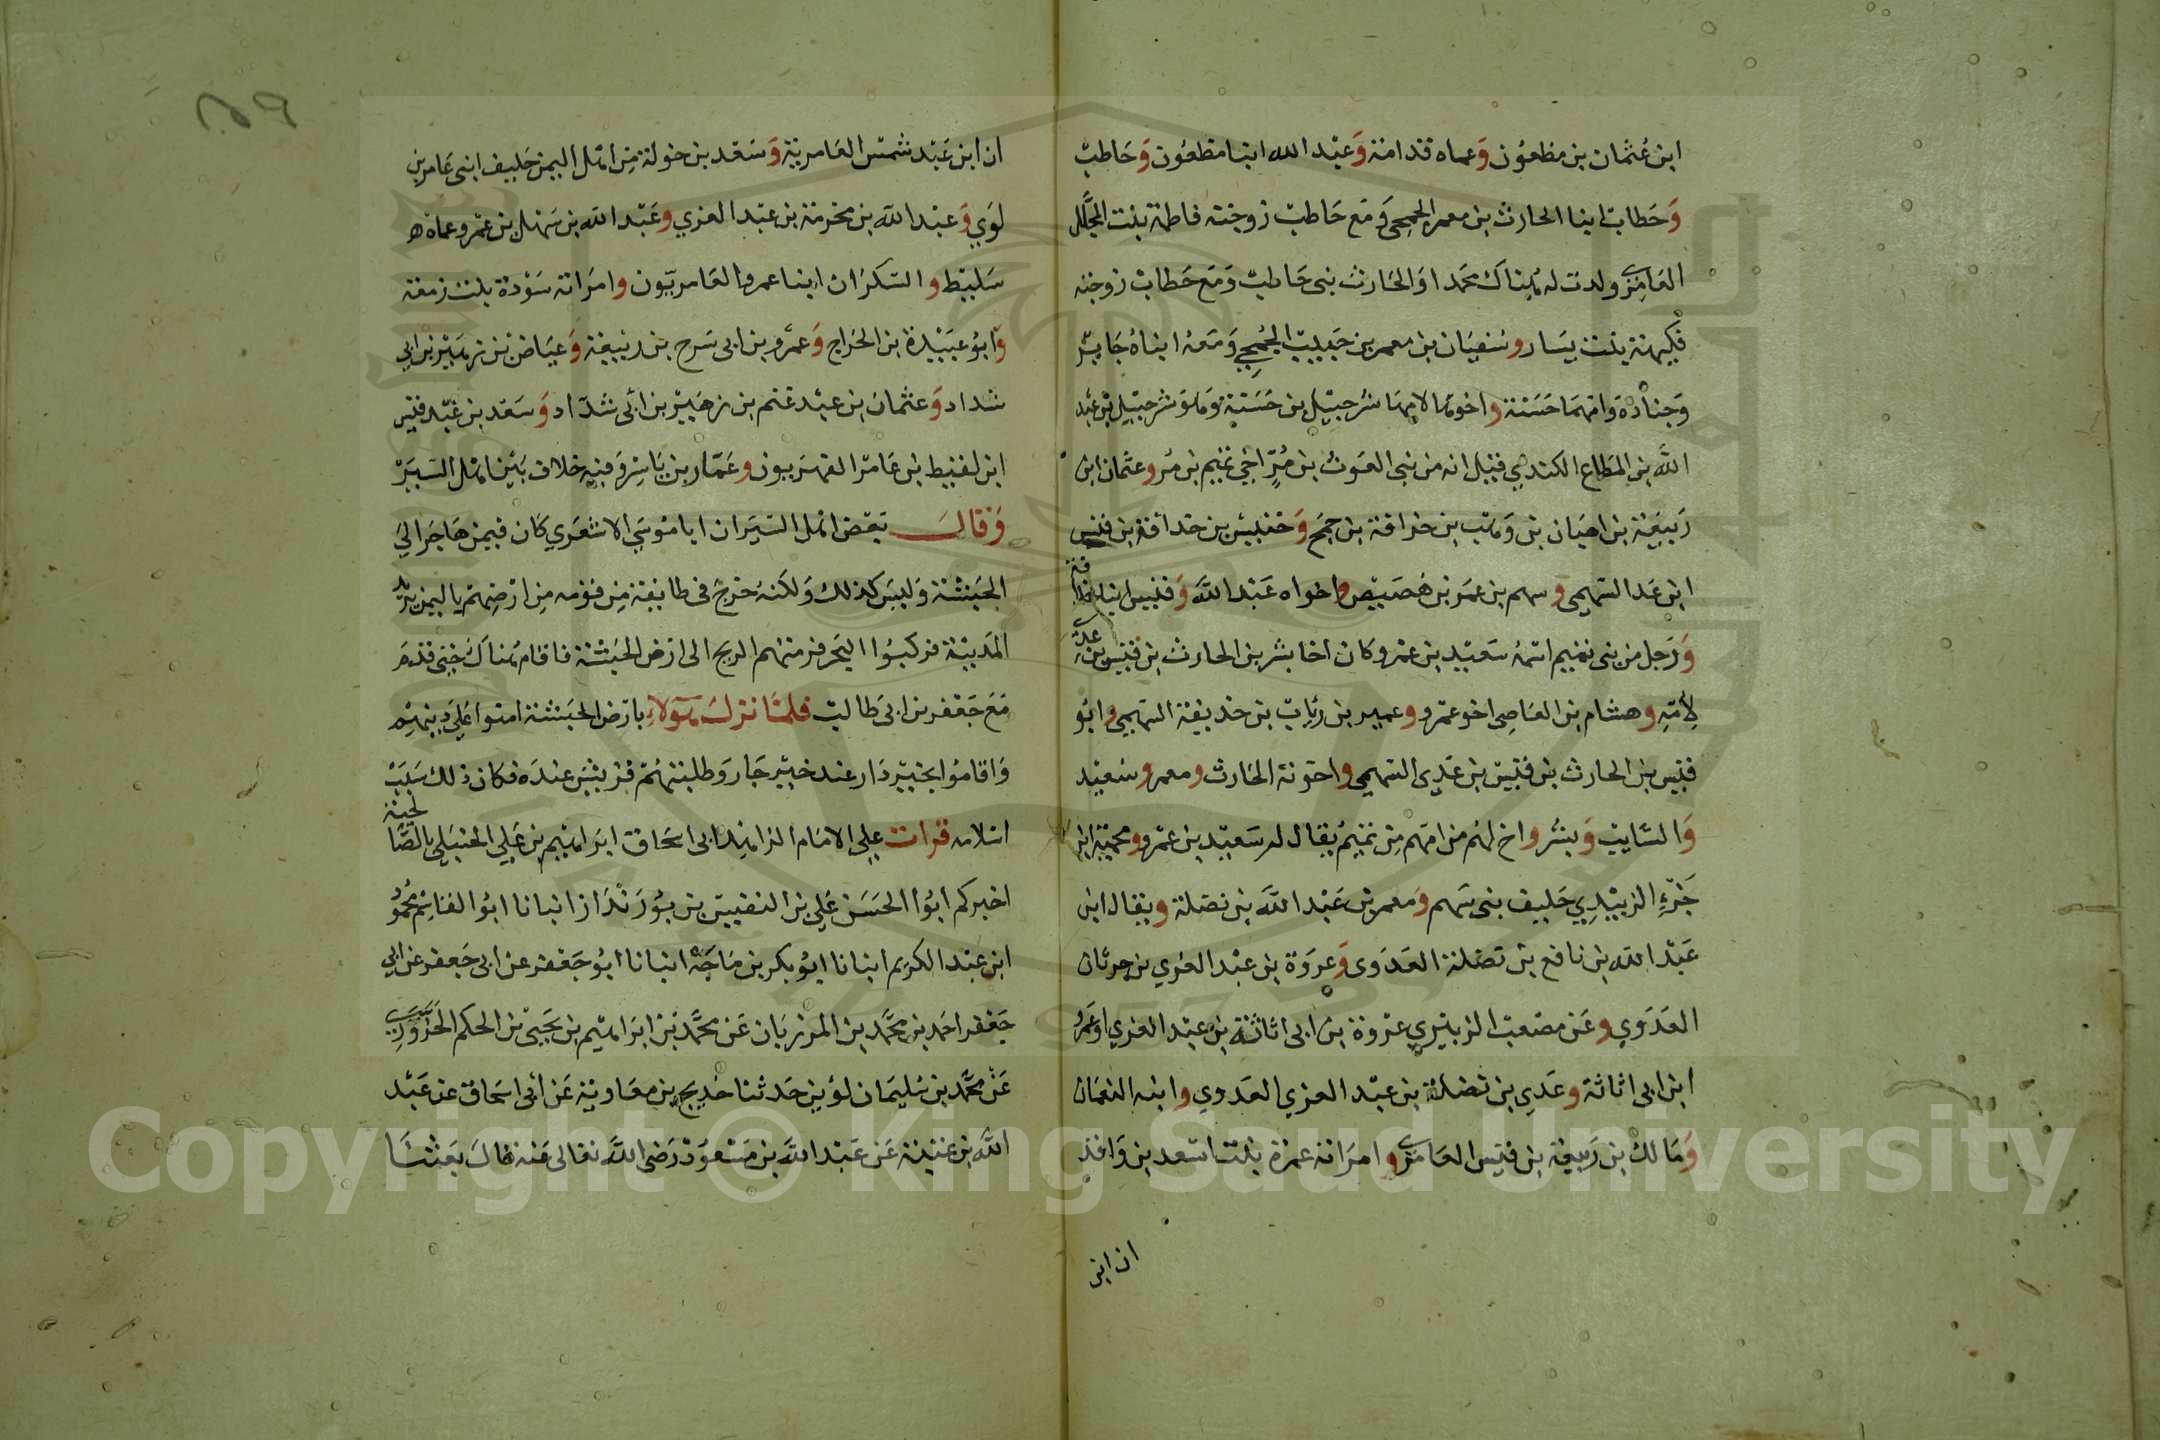 ابن عُثمان بن مظعُون وَعماه قدامنة وَعبْد الله ابنا مظعُون وَحَاطبْ
وَحَطابْ ابنا الحارث بن معمر الجمحِي وَمَع حَاطبْ زوجته فاطمة بنت المجلَّل
العَامِري ولدت له هُنَاك محَمدا وَالحَارث بنى حَاطبْ وَمَع حَطابْ زوجته
فكيهة بنت يسَار وسُفيَان بن معمر بن حَبيبْ الجُمحِي وَمَعه ابناهُ جَابِرْ
وَجنَادَه وَامّهمَا حَسَنة واخوهما لامهما شُرحبيْل بن حَسَنة وَهوَ شرحبيْل بْن عَبد
اللَّه بن المطَاع الكندي قيل انه من بنى الغَوث بن مُرٍّ اخي تميم بن مُر وعثمان ابن
رَبيعَة بن اهبَان بن وَهبْ بن حذافة بن جمَح وَخنيسْ بن حذافة بن قيس
ابن عَد السّهمي وسهم بن عَمرَ بن هُصَيْص واخواه عَبْد اللَّه وَقيسْ ابنا حذافة
وَرَجل من بنى تميم اسْمهُ سَعيْد بن عمْرو كان اخا بشر بن الحارث بن قيسْ بن عدِيّ
لِأمّهِ وهشام بن العَاصِي اخو عمْرو وعمير بن رئابْ بن حذيفة السّهمي وابُو
قيس بن الحارث بن قيسْ بن عَدِي السّهمي واخوَتهُ الحَارث ومعمر وسَعيْد
وَالسّايبْ وَبشر واخ لهُم من امّهم مِن تميم يُقال له سَعيْد بن عمْرو ومحميَة ابن
جَزْءٍ الزبيْدي حَليف بنى سَهم وَمعمر بْن عَبْد اللَّه بن نضلة ويقال ابن
عَبْد الله بن نافع بن نضلة العَدَوي وَعروَة بن عبْد العُزي بن حرثان
العَدَوي وعَن مصْعَب الزبيْري عرْوة بن ابى اثاثة بن عبْد العزي اوْ عَمرو
ابن ابى اثاثة وعَدِي بن نضلة بن عبْد العزي العَدَوي وابنه النعمَان
وَمَالك بن رَبيعَة بن قيْس العَامِري وامرَاته عمرَة بنت اسعد بن وَاقد
ان ابن
ان ابن عَبْد شمسْ العَامريّة وَسَعْد بن خولة مِن اهْل اليمن حَليف ابنى عَامر بن
لوَي وَعبْد اللَّه بن مخرمة بن عبْد العزي وعَبْد الله بن سَهيْل بن عمْرو وعماه هو
سَليْط والسّكرَان ابنا عمرو العَامريّون وامرَاته سَوْدة بنت زمعَة
وَابوُ عبَيْدة بن الجَراح وَعَمْرو بن ابى سَرح بن ربيعَة وَعيَاض بن زهيْر بن ابى
شداد وَعثمان بن عبْد غنم بن زهَيْر بن ابى شدّاد وَسَعْد بن عَبْد قيْس
ابن لقيط بن عَامرْ الفهريون وعَمّار بن يَاسِر وَفيه خلاف بَيْن اهْل السّيَرْ
وَقال بَعْض اهْل السّيَر ان ابا مُوسَي الاشعَري كَان فيمن هَاجَر الي
الحَبشة وَليسَ كذلك وَلكنهُ خرَج فى طايفة مِن قومه مِن ارضهمْ باليمن يرِيد
المَدينة فركبُوا البحر فرمتهم الريح الى ارض الحَبشة فاقام هُناكَ حتي قدمَ
مَع جَعْفر بن ابى طالبْ فلمّا نزل هَوُلاءِ بارْض الحَبشة امنوا عَلي دِينهمْ
وَاقامُوا بخَير دَار عند خيْر جَار وَطلبتهُمْ قريْش عندَه فكان ذلك سَبَبْ
اسْلامه قرات علي الامَام الزاهِد ابى اسحَاق ابرَاهيم بن عَلي الحنبَلِي بالصَّالحية
اخبركم ابُو الحَسَن عَلي بن النفيسْ بن بُورَنْدَاز انبانا ابُو القاسِم محمُود
ابن عَبْد الكريم انبانا ابُو بكر بن مَاجَة انبانا ابُو جَعْفر عن ابى جَعفر عن ابي
جَعْفر احمَد بن محَمَّد بن المرزبَان عَن محَمَّد بن ابرَاهيْم بن يَحيىْ بن الحكم الحَزَوَّرِي
عَنْ محَمَّد بن سُليمَان لؤين حَدثنا خُديج بن معَاويَة عَن أبى اسحَاق عن عَبْد
اللَّه بن عتبة عَن عَبْد اللَّه بن مَسْعوُدْ رَضِى اللَّه تعَالى عَنه قال بَعَثنَا